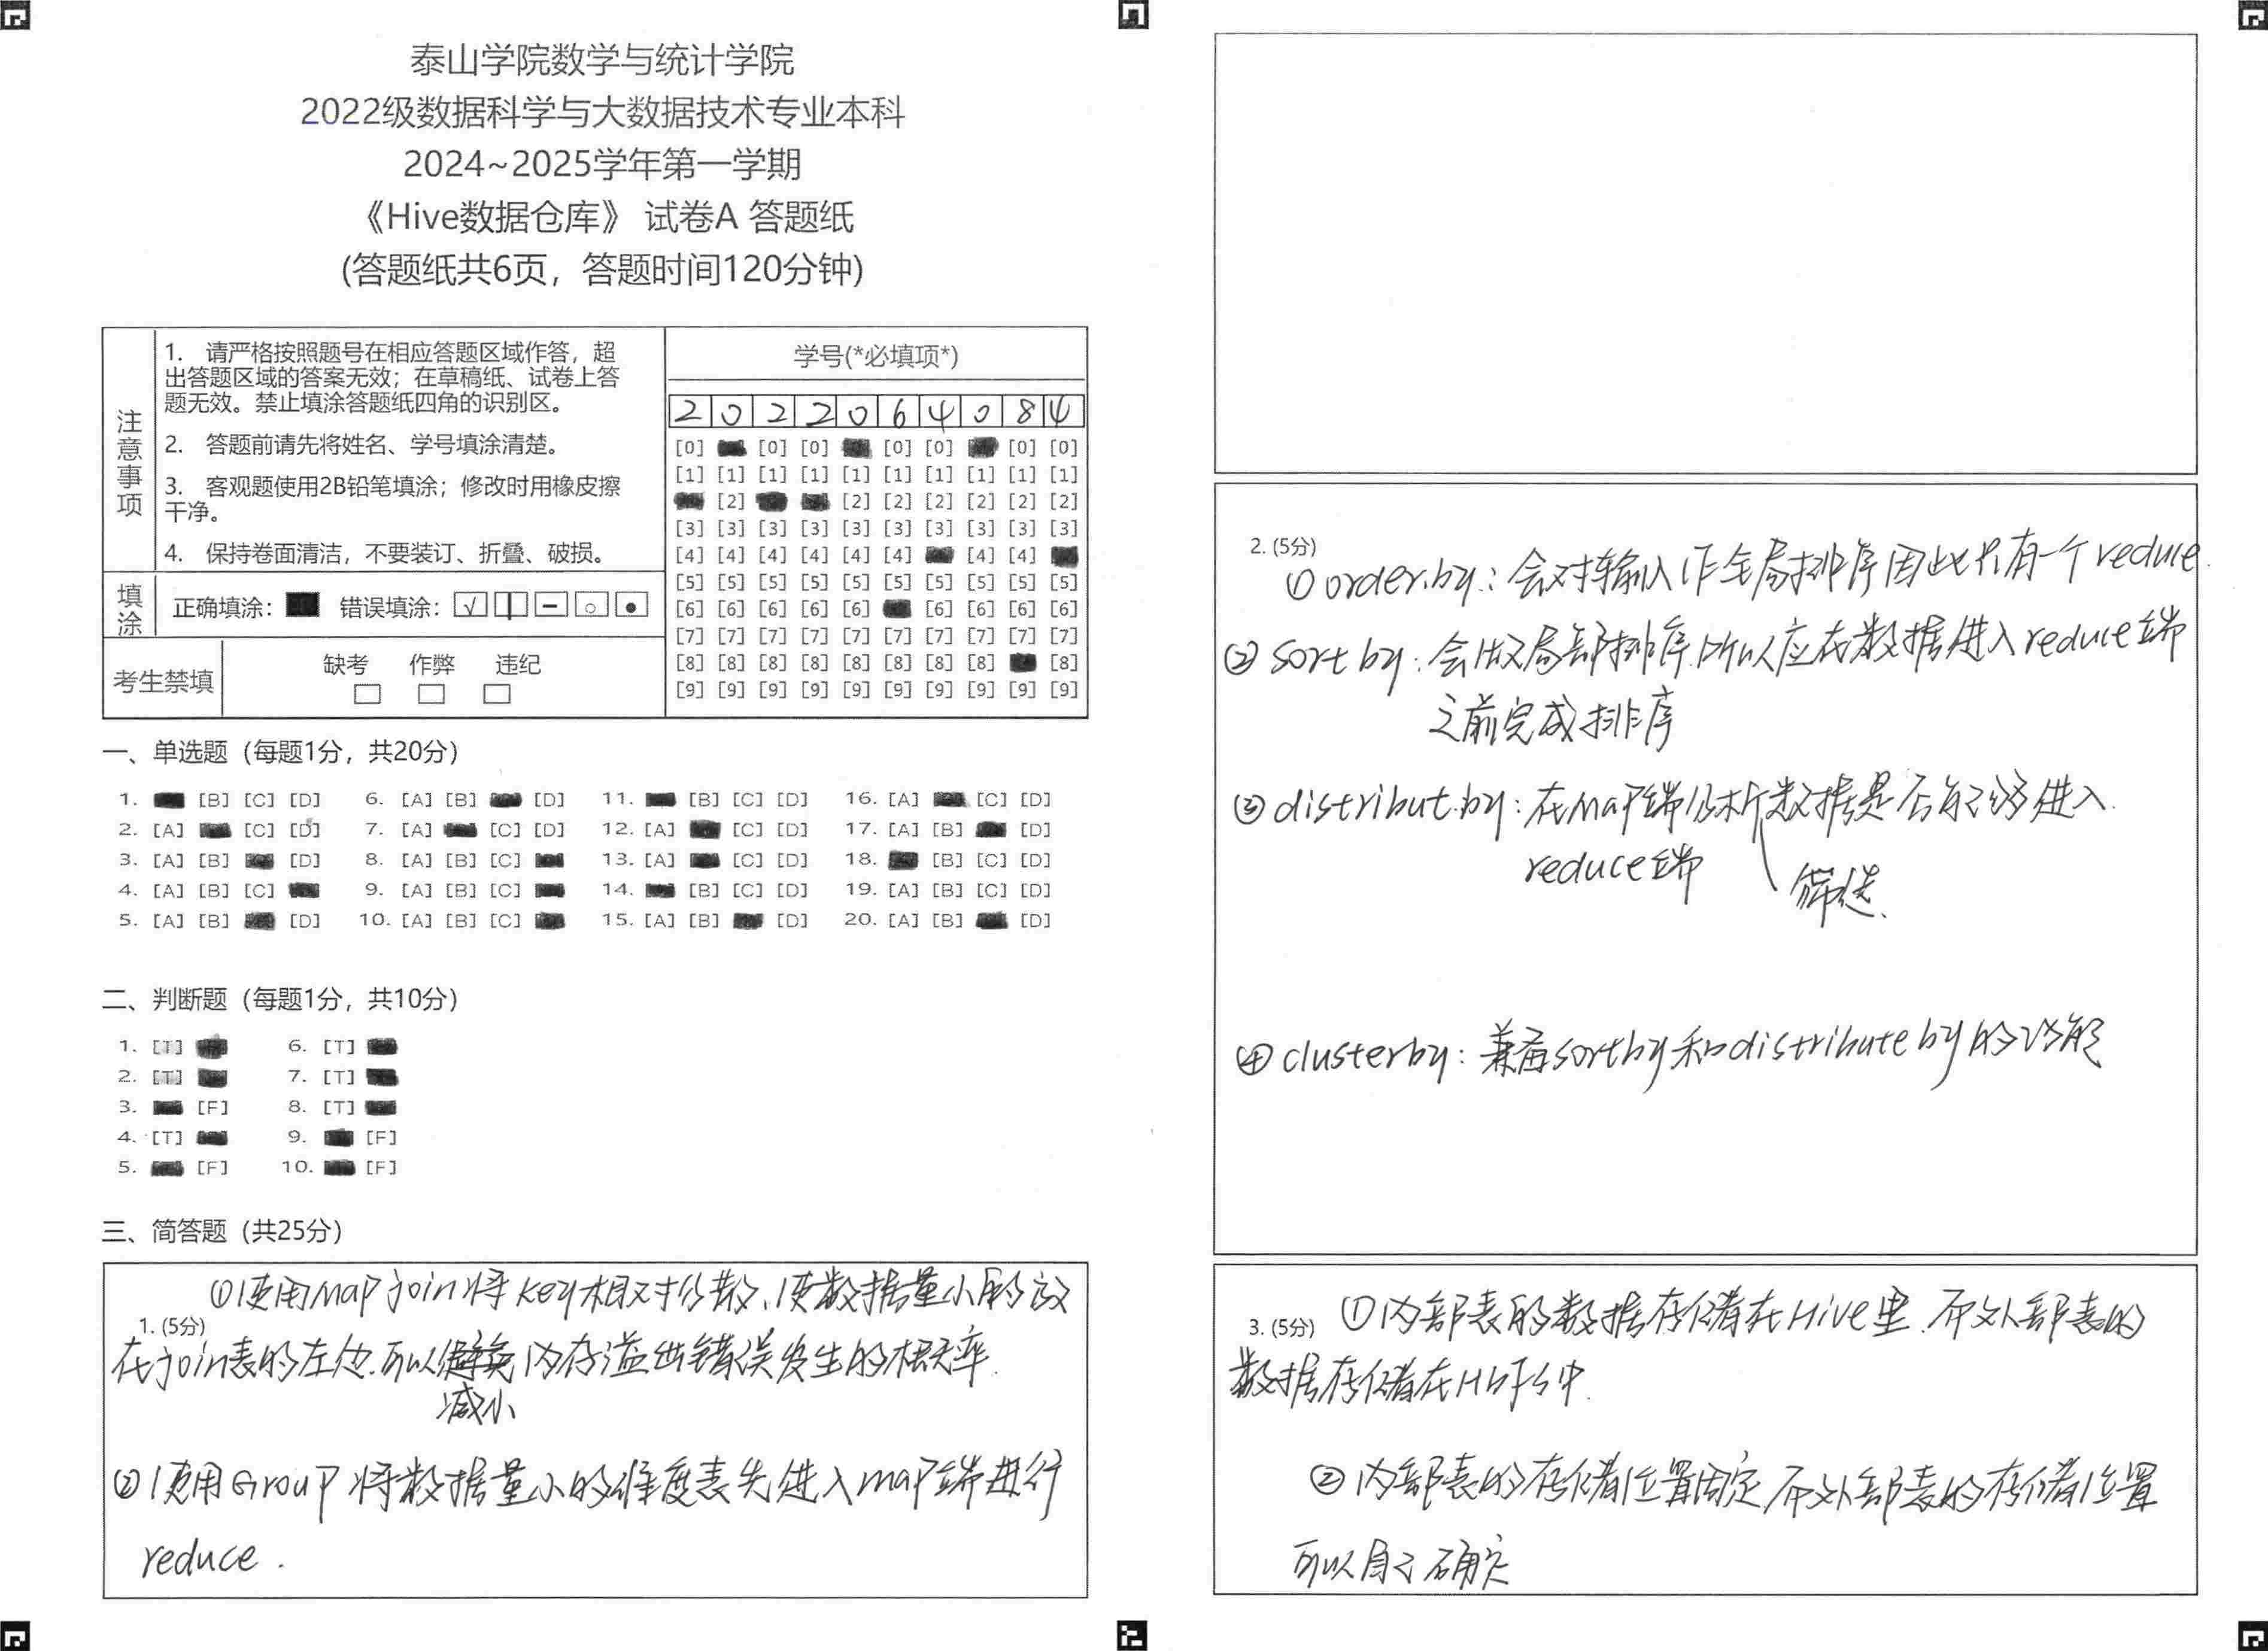 泰山学院数学与统计学院
2022级数据科学与大数据技术专业本科
2024~2025学年第一学期
《Hive数据仓库》 试卷A 答题纸
(答题纸共6页，答题时间120分钟)
注意事项
1. 请严格按照题号在相应答题区域作答，超
出答题区域的答案无效；在草稿纸、试卷上答
题无效。禁止填涂答题纸四角的识别区。
2. 答题前请先将姓名、学号填涂清楚。
3. 客观题使用2B铅笔填涂；修改时用橡皮擦
干净。
4. 保持卷面清洁，不要装订、折叠、破损。
填涂
正确填涂： 错误填涂：
考生禁填
缺考 作弊 违纪
学号(*必填项*)
2 0 2 2 0 6 4 0 8 4
[0] [0] [0] [0] [0] [0] [0]
[1] [1] [1] [1] [1] [1] [1] [1] [1] [1]
[2] [2] [2] [2] [2] [2] [2]
[3] [3] [3] [3] [3] [3] [3] [3] [3] [3]
[4] [4] [4] [4] [4] [4] [4] [4]
[5] [5] [5] [5] [5] [5] [5] [5] [5] [5]
[6] [6] [6] [6] [6] [6] [6] [6] [6]
[7] [7] [7] [7] [7] [7] [7] [7] [7] [7]
[8] [8] [8] [8] [8] [8] [8] [8] [8]
[9] [9] [9] [9] [9] [9] [9] [9] [9] [9]
一、单选题（每题1分，共20分）
1. [B] [C] [D] 6. [A] [B] [D] 11. [B] [C] [D] 16. [A] [C] [D]
2. [A] [C] [D] 7. [A] [C] [D] 12. [A] [C] [D] 17. [A] [B] [D]
3. [A] [B] [D] 8. [A] [B] [C] 13. [A] [C] [D] 18. [B] [C] [D]
4. [A] [B] [C] 9. [A] [B] [C] 14. [B] [C] [D] 19. [A] [B] [C] [D]
5. [A] [B] [D] 10. [A] [B] [C] 15. [A] [B] [D] 20. [A] [B] [D]
二、判断题（每题1分，共10分）
1. [T] 6. [T]
2. [T] 7. [T]
3. [F] 8. [T]
4. [T] 9. [F]
5. [F] 10. [F]
三、简答题（共25分）
①使用map join将key相对分散、使数据量小的放
1. (5分)
在join表的左边.可以内存溢出错误发生的概率.
减小
②使用Group将数据量小的维度表先进入map端进行
reduce.
2. (5分)
①order.by.: 会对输入作全局排序因此只有一个reduce.
②sort by: 会做局部排序.所以应在数据进入reduce端
之前完成排序
③distribut.by: 在map端分析数据是否能够进入.
reduce端 筛选.
④clusterby: 兼备sortby和distribute by的功能
3. (5分) ①内部表的数据存储在Hive里.而外部表的
数据存储在HDFS中.
②内部表的存储位置固定.而外部表的存储位置
可以自己确定